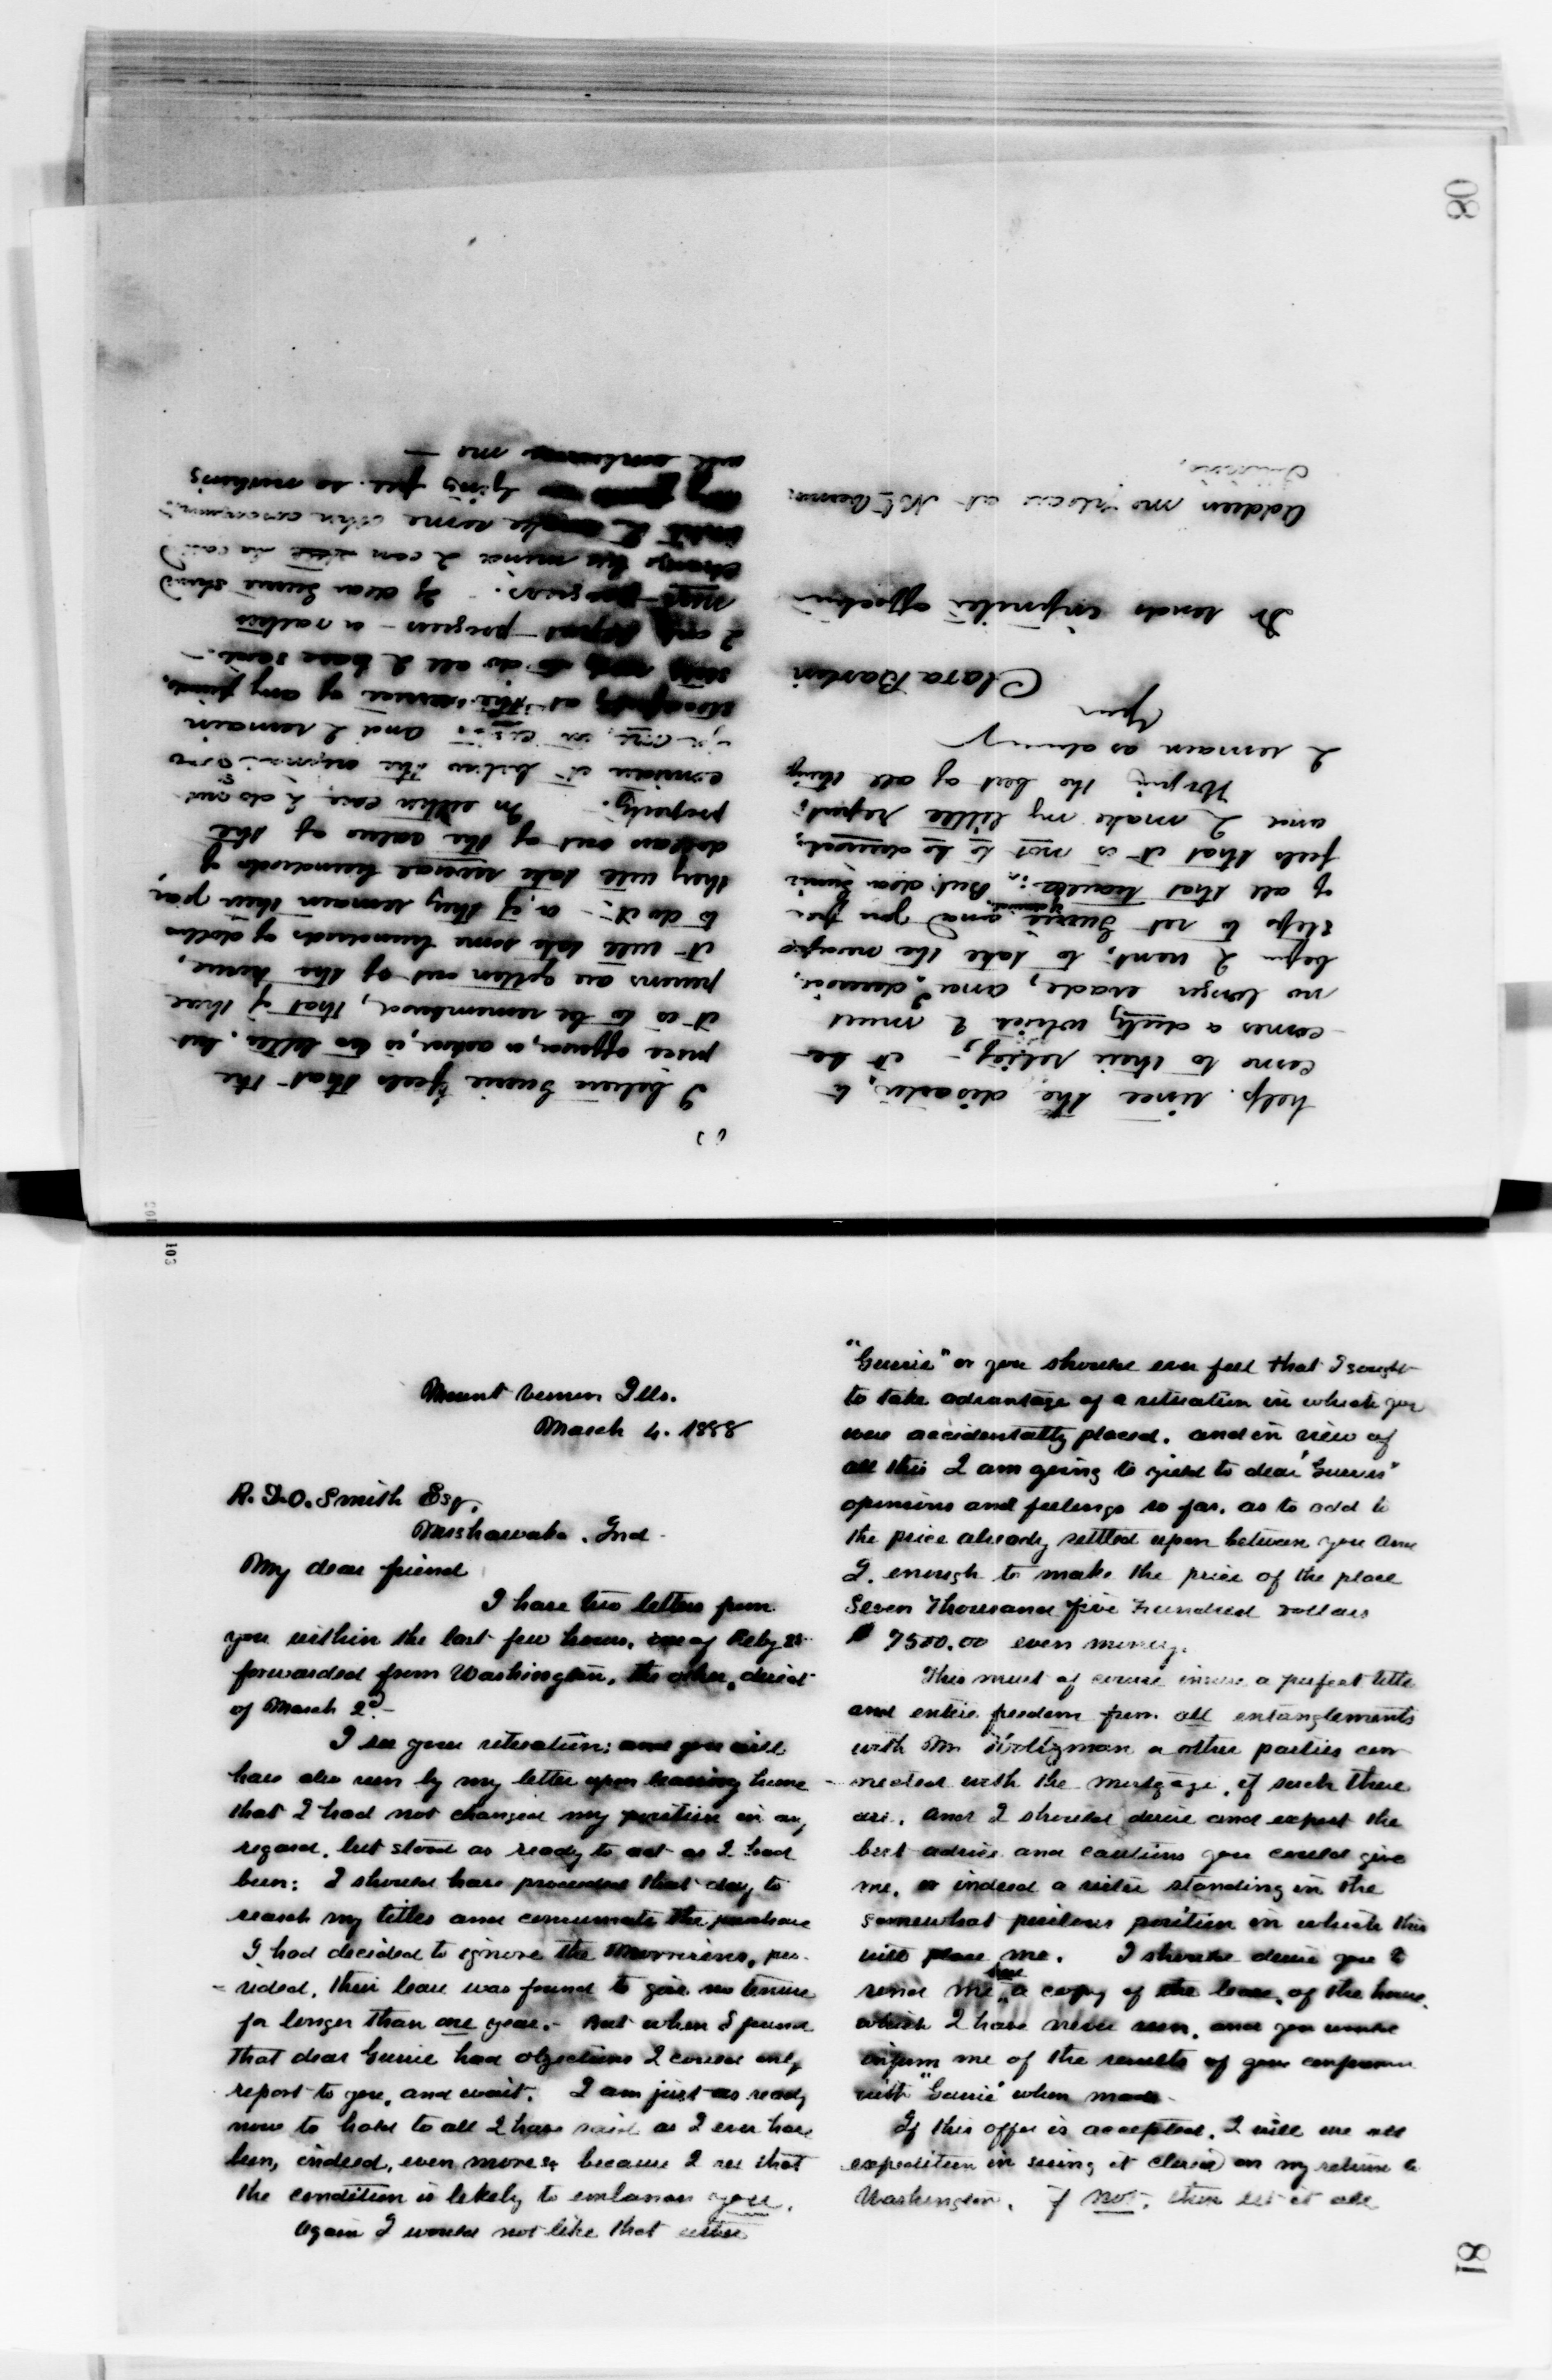 80
help. since the disaster, to
come to their relief, - it be-
comes a duty which I must
no longer evade, and
before I went, to take the
steps to set Gussie and you free
of all that But dear Gussie
feels that it is not to be
and I make my little report;
Hoping the best of all things
I remain as always
Yours
Clara Barton
Dr sends infinite affection
Address me please at Mt Vernon
Illinois,
I believe Gussie feels that the
price offered, or asked, is too little. but
it is to be remembered, that if three
persons are gotten out of the house,
it will take some hundreds of dollars
to do it. - or, if they remain their year,
they will take several hundreds of
dollars out of the value of the
property. In either case, I do not
consider it below the original
and I remain
at the service of my friends,
to do all I have said. -
I only report progress - a rather
progress. - If dear Gussie should
change her mind I can
some other arrangement
lying free. so nothing
will embarrass me -
103
Mount Vernon Ills.
March 4. 1888
R. I. O. Smith Esq.
Mishawaka. Ind -
My dear friend
I have two letters from
you within the last few hours, one of Feby 28
forwarded from Washington, the other, direct
of March 2d. -
I see your situation; and you will
have also seen by my letter upon leaving home
that I had not changed my position in any
regard, but stood as ready to act as I had
been: I should have proceeded that day to
search my titles and consumate the purchase
I had decided to ignore the Morrisons, pro-
- vided, their lease was found to give no tenure
for longer than one year. - But when I found
that dear Gussie had objections I could only
report to you, and wait. I am just as ready
now to hold to all I have said as I ever have
been, indeed, even more so because I see that
the condition is likely to embarass you.
Again I would not like that either
"Gussie" or you should ever feel that I sought
to take advantage of a situation in which you
were accidentally placed. and in view of
all this I am going to yield to dear "Gussies"
opinions and feelings so far, as to add to
the price already settled upon between you and
I. enough to make the price of the place
Seven Thousand five Hundred Dollars
$ 7500.00 even money.
This must of course insure a perfect title
and entire freedom from all entanglements
with Mr Holtzman or other parties con-
- nected with the mortgage, if such there
are. And I should desire and expect the
best advice and cautions you could give
me, as indeed a sister standing in the
somewhat perilous position in which this
will place me. I should desire you to
send me here a copy of the lease, of the house.
which I have never seen, and you would
inform me of the results of your conference
with "Gussie" when made -
If this offer is accepted, I will use all
expedition in seeing it closed on my return to
Washington. If not, then let it all
81